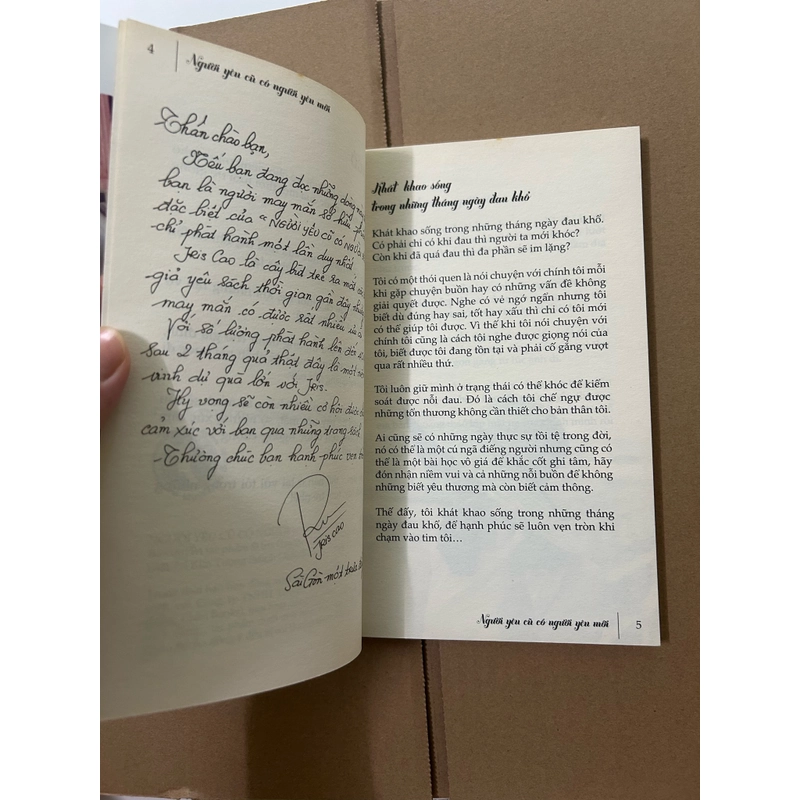 4
Người yêu cũ có người yêu mới
Thân chào bạn,
Nếu bạn đang đọc những dòng
bạn là người may mắn sở hữu
đặc biệt của "NGƯỜI YÊU CŨ CÓ NGƯỜI
chỉ phát hành một lần duy nhất.
Iris Cao là cây bút trẻ ra mắt
giả yêu sách thời gian gần đây
may mắn có được rất nhiều
Với số lượng phát hành lên đến
sau 2 tháng quả thật đây là một
vinh dự quá lớn với Iris.
Hy vọng sẽ còn nhiều cơ hội được
cảm xúc với bạn qua những trang sách.
Thương chúc bạn hạnh phúc vẹn
IRIS CAO
Sài Gòn một
Khát khao sống
trong những tháng ngày đau khổ
Khát khao sống trong những tháng ngày đau khổ.
Có phải chỉ có khi đau thì người ta mới khóc?
Còn khi đã quá đau thì đa phần sẽ im lặng?
Tôi có một thói quen là nói chuyện với chính tôi mỗi
khi gặp chuyện buồn hay có những vấn đề không
giải quyết được. Nghe có vẻ ngớ ngẩn nhưng tôi
biết dù đúng hay sai, tốt hay xấu thì chỉ có tôi mới
có thể giúp tôi được. Vì thế khi tôi nói chuyện với
chính tôi cũng là cách tôi nghe được giọng nói của
tôi, biết được tôi đang tồn tại và phải cố gắng vượt
qua rất nhiều thứ.
Tôi luôn giữ mình ở trạng thái có thể khóc để kiểm
soát được nỗi đau. Đó là cách tôi chế ngự được
những tổn thương không cần thiết cho bản thân tôi.
Ai cũng sẽ có những ngày thực sự tồi tệ trong đời,
nó có thể là một cú ngã điếng người nhưng cũng có
thể là một bài học vô giá để khắc cốt ghi tâm, hãy
đón nhận niềm vui và cả những nỗi buồn để không
những biết yêu thương mà còn biết cảm thông.
Thế đấy, tôi khát khao sống trong những tháng
ngày đau khổ, để hạnh phúc sẽ luôn vẹn tròn khi
chạm vào tim tôi…
Người yêu cũ có người yêu mới
5